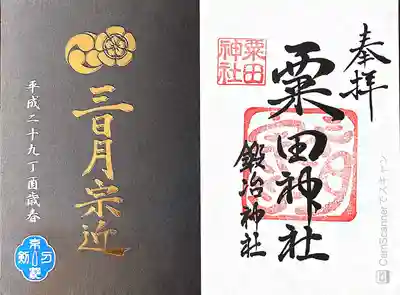 三日月宗近
平成二十九丁酉歳春
奉拝
粟田神社
鍛冶神社
粟田
神社
CamScannerでスキャン